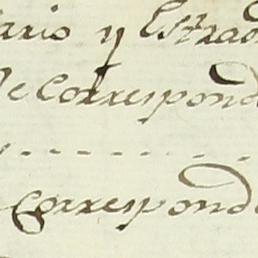 ario y Estrao
de Correspond
Correspond